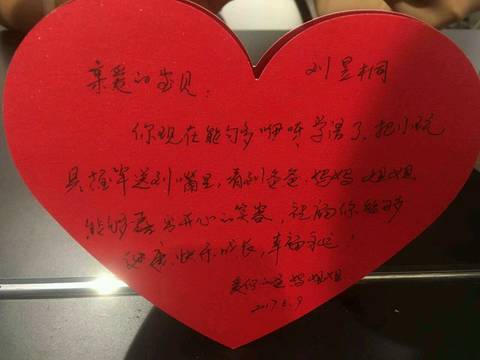 亲爱的宝贝： 刘昱桐
你现在能够咿呀学语了，把小玩
具握牢送到嘴里，看到爸爸、妈妈、姐姐，
能够露出开心的笑容，祝福你能够
健康、快乐成长，幸福永远！
爱你的爸妈姐姐
2017.6.9